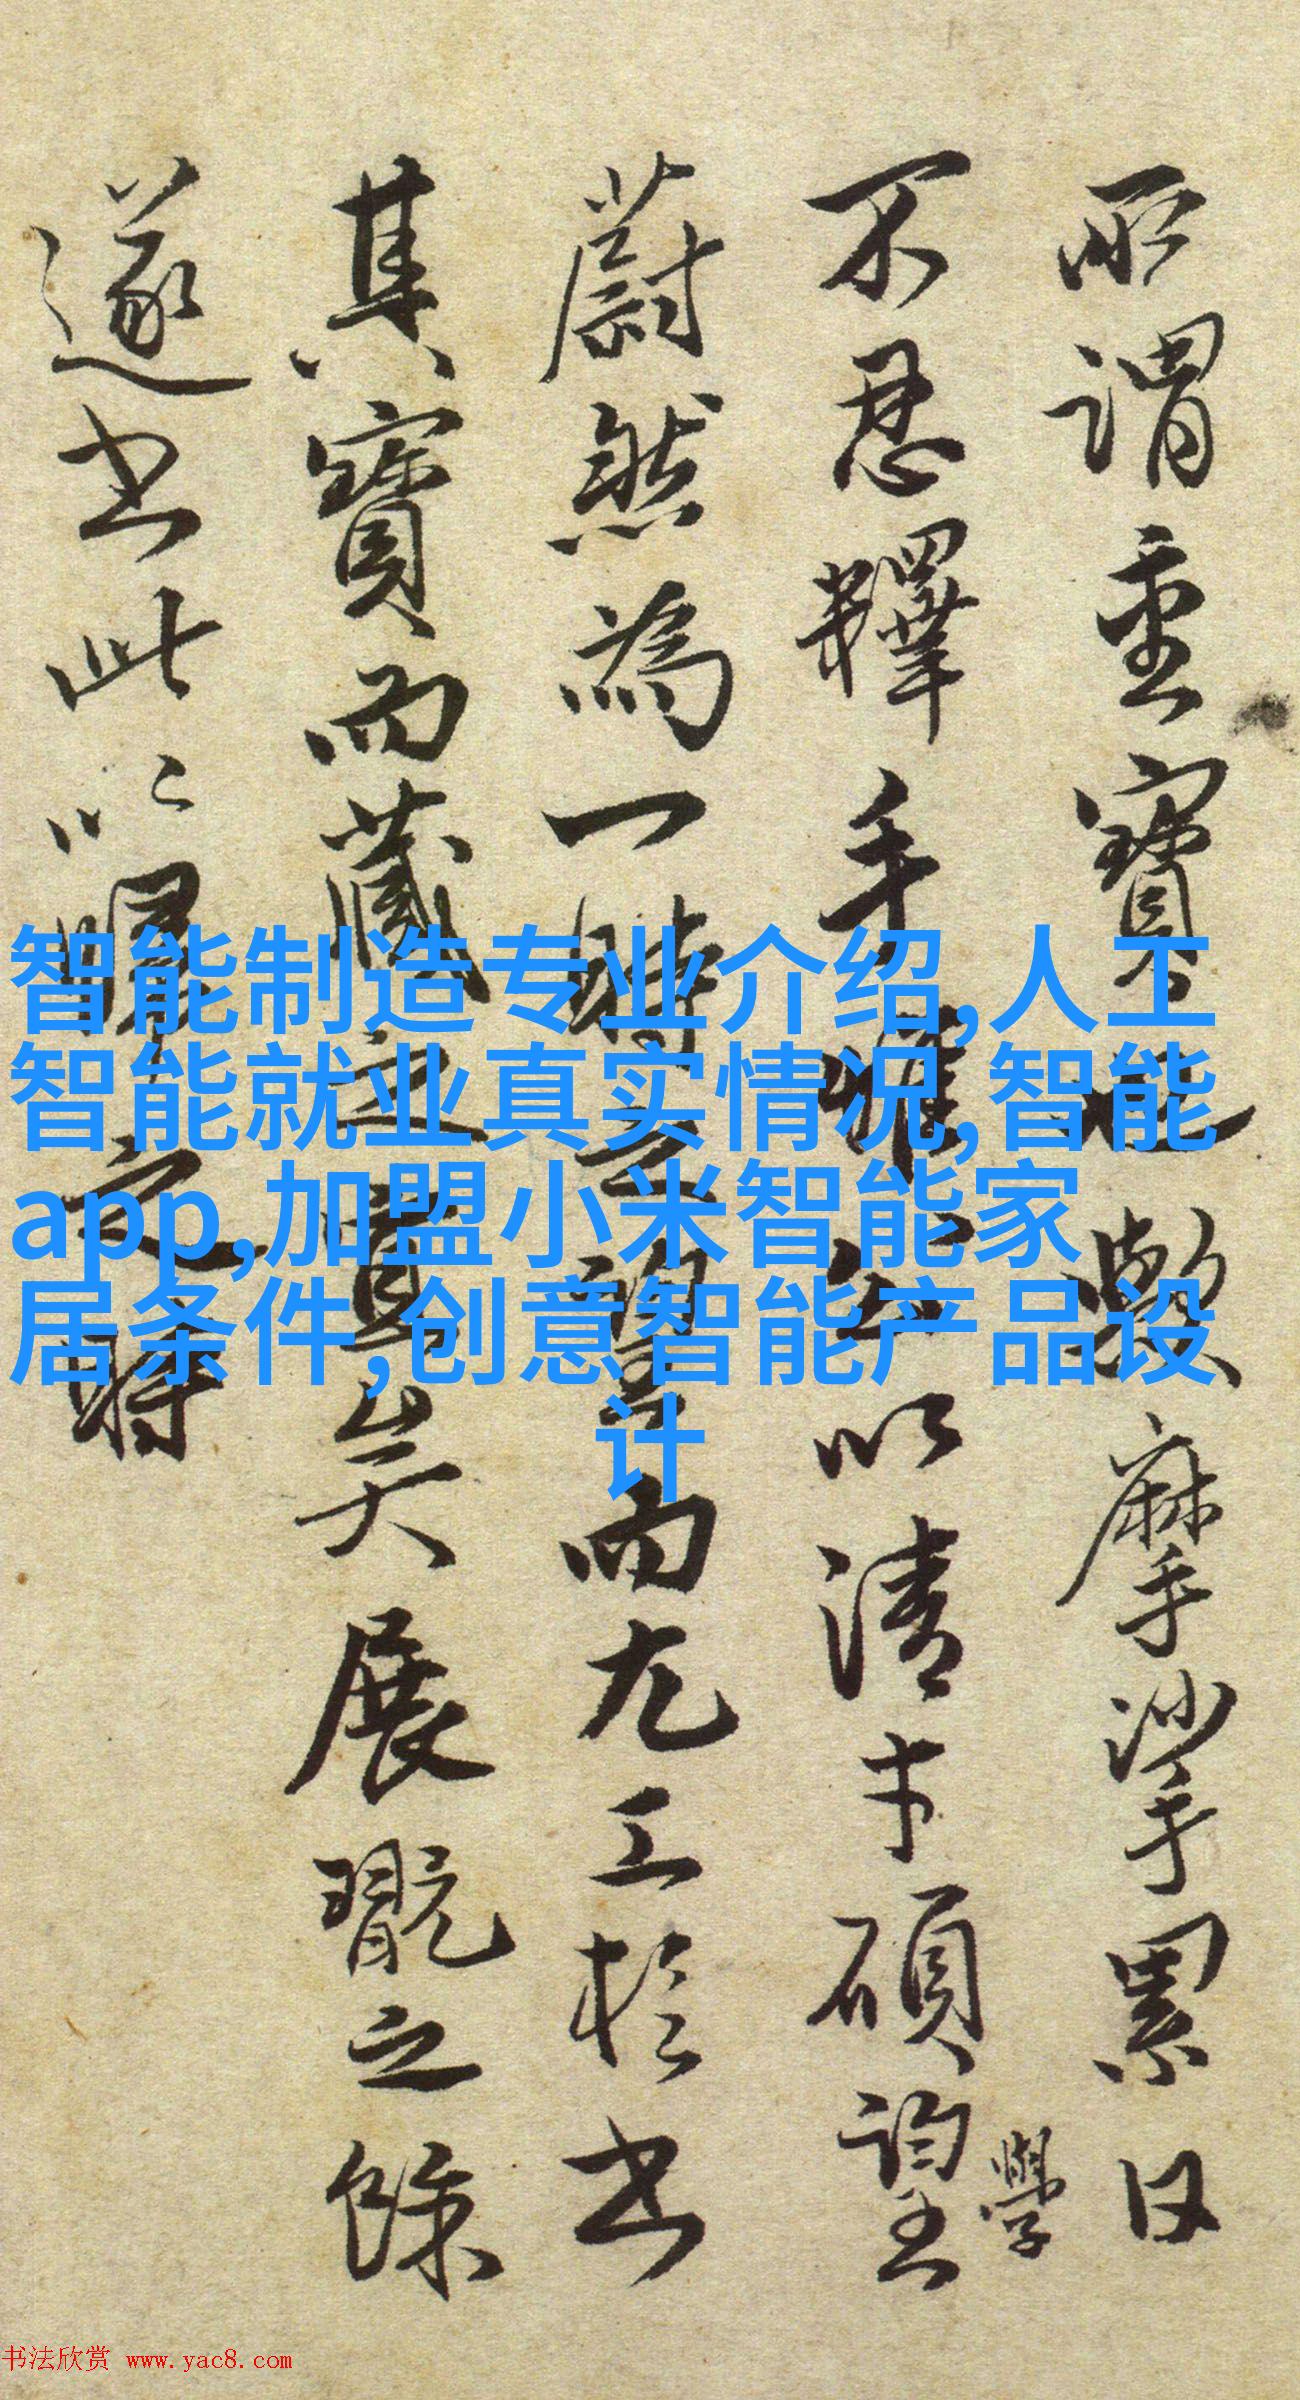 所謂重寶也摩挲累日
不忍釋手惟公以清才碩望
學
蔚然為一時之望而尤工於書
其寶而藏之宜矣展翫之餘
遂書此以歸之時
智能制造专业介绍,人工
智能就业真实情况,智能
app,加盟小米智能家
居条件,创意智能产品设
计
书法欣赏 www.yac8.com